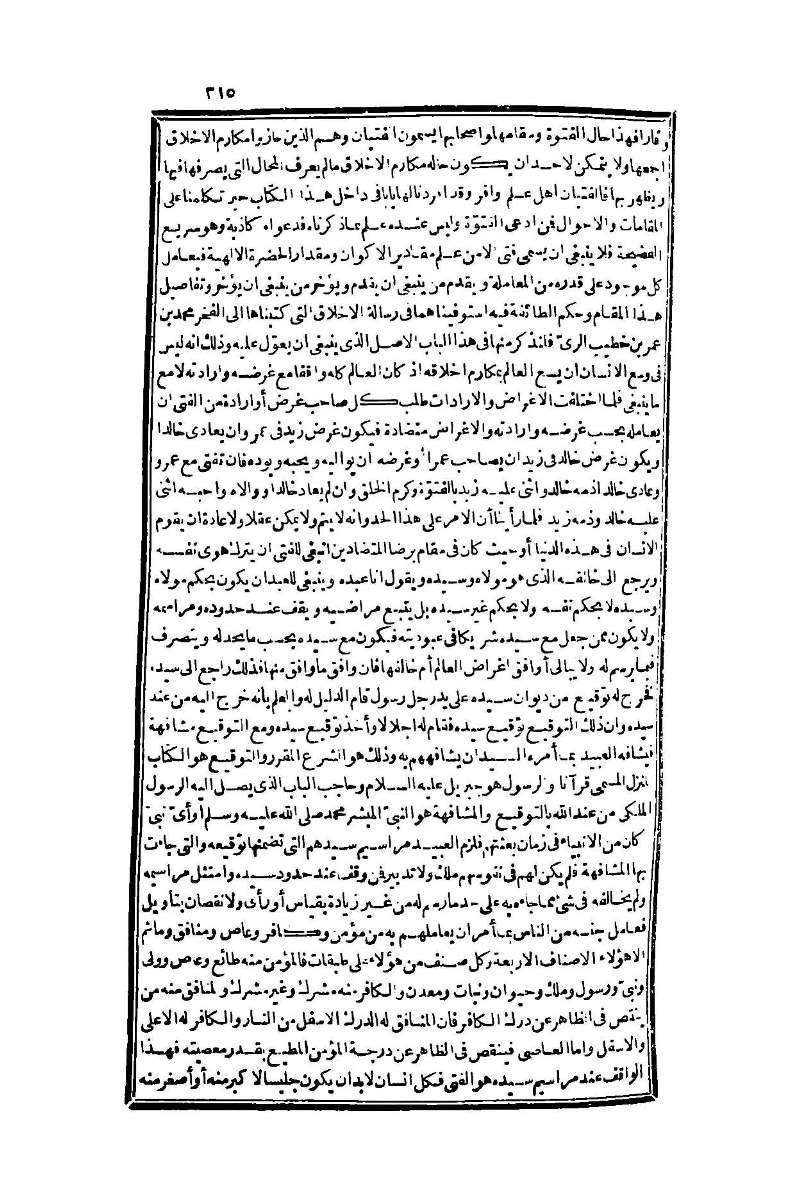 ٣١٥
وقارا فهذا حال الفتوة ومقامها واصحابها يسمون الفتيان وهم الذين حازوا مكارم الاخلاق
اجعها ولا يتمكن لاحد ان يكون حاله مكارم الاخلاق مالم يعرف المحال التى يصرفها فيها
ويظهر بها فالفتيان اهل علم وافر وقد افردنا لها بابا فى داخل هذا الكتاب حين تكلمنا على
المقامات والاحوال فمن ادعى الفتوة وليس عنده علم بما ذكرناه فدعواه كاذبة وهو سريع
الفضيحة فلا ينبغى ان يسمى فتى الا من علم مقادير الاكوان ومقدار الحضرة الالهية فيعامل
كل موجود على قدره من المعاملة ويقدم من ينبغى ان يقدم ويؤخر من ينبغى ان يؤخر وتفاصيل
هذا المقام وحكم الطائفة فيه استوفيناهما فى رسالة الاخلاق التى كتبناها الى الفخر محمد بن
عمر بن خطيب الرى فلنذكر منها فى هذا الباب الاصل الذى ينبغى ان يعول عليه وذلك انه ليس
فى وسع الانسان ان يسع العالم بمكارم اخلاقه اذ كان العالم كله واقفا مع غرضه وارادته لا مع
ما ينبغى فلما اختلفت الاغراض والارادات طلب كل صاحب غرض أو ارادة من الفتى ان
يعامله بحسب غرضه وارادته والاغراض متضادة فيكون غرض زيد فى عمر وان يعادى خالدا
ويكون غرض خالد فى زيد ان يصاحب عمرا وغرضه ان يواليه ويحبه ويوده فان تفتى مع عمرو
وعادى خالدا ذمه خالد واثنى عليه زيد بالفتوة وكرم الخلق وان لم يعاد خالدا ووالاه واحبه اثنى
عليه خالد وذمه زيد فلما رأينا أن الامر على هذا الحد وانه لا يتم ولا يمكن عقلا ولا عادة ان يقوم
الانسان فى هذه الدنيا أو حيث كان فى مقام برضا المتضادين انبغى للفتى ان يترك هوى نفسه
ويرجع الى خالقه الذى هو مولاه وسيده ويقول انا عبده وينبغى للعبد ان يكون بحكم مولاه
وسيده لا بحكم نفسه ولا بحكم غير سيده بل يتبع مراضيه ويقف عند حدوده ومراسمه
ولا يكون ممن جعل مع سيده شريكا فى عبوديته فيكون مع سيده بحسب ما يحد له ويتصرف
فيما يرسم له ولا يبالى أوافق اغراض العالم أم خالفها فان وافق ما وافق منها فذلك راجع الى سيده
فخرج له توقيع من ديوان سيده على يد رجل رسول قام الدليل له والعلم بانه خرج اليه من عند
سيده وان ذلك التوقيع توقيع سيده فقام له اجلالا وأخذ توقيع سيده ومع التوقيع مشافهة
فيشافه العبيد بما أمره السيد ان يشافههم به وذلك هو الشرع المقرر والتوقيع هو الكتاب
المنزل المسمى قرآنا والرسول هو جبريل عليه السلام وحاجب الباب الذى يصل اليه الرسول
الملكى من عند الله بالتوقيع والمشافهة هو النبى المبشر محمد صلى الله عليه وسلم أو أى نبى
كان من الانبياء فى زمان بعثتهم فلزم العبيد مراسيم سيدهم التى تضمنها توقيعه والتى جاءت
بها المشافهة فلم يكن لهم فى نفوسهم ملك ولا تدبير فمن وقف عند حدود سيده وامتثل مراسيمه
ولم يخالفه فى شئ مما جاءه به على حد ما رسم له من غير زيادة بقياس أو رأى ولا نقصان بتأويل
فعامل جنسه من الناس بما أمر ان يعاملهم به من مؤمن وكافر وعاص ومنافق وما ثم
الا هؤلاء الاصناف الاربعة وكل صنف من هؤلاء على طبقات فالمؤمن منه طائع وعاص وولى
ونبى ورسول وملك وحيوان ونبات ومعدن والكافر منه مشرك وغير مشرك والمنافق منه من
ينقص فى الظاهر عن درك الكافر فان المنافق له الدرك الاسفل من النار والكافر له الاعلى
والاسفل واما العاصى فينقص فى الظاهر عن درجة المؤمن المطيع بقدر معصيته فهذا
الواقف عند مراسيم سيده هو الفتى فكل انسان لا بد ان يكون جليسا لاكبر منه أو أصغر منه